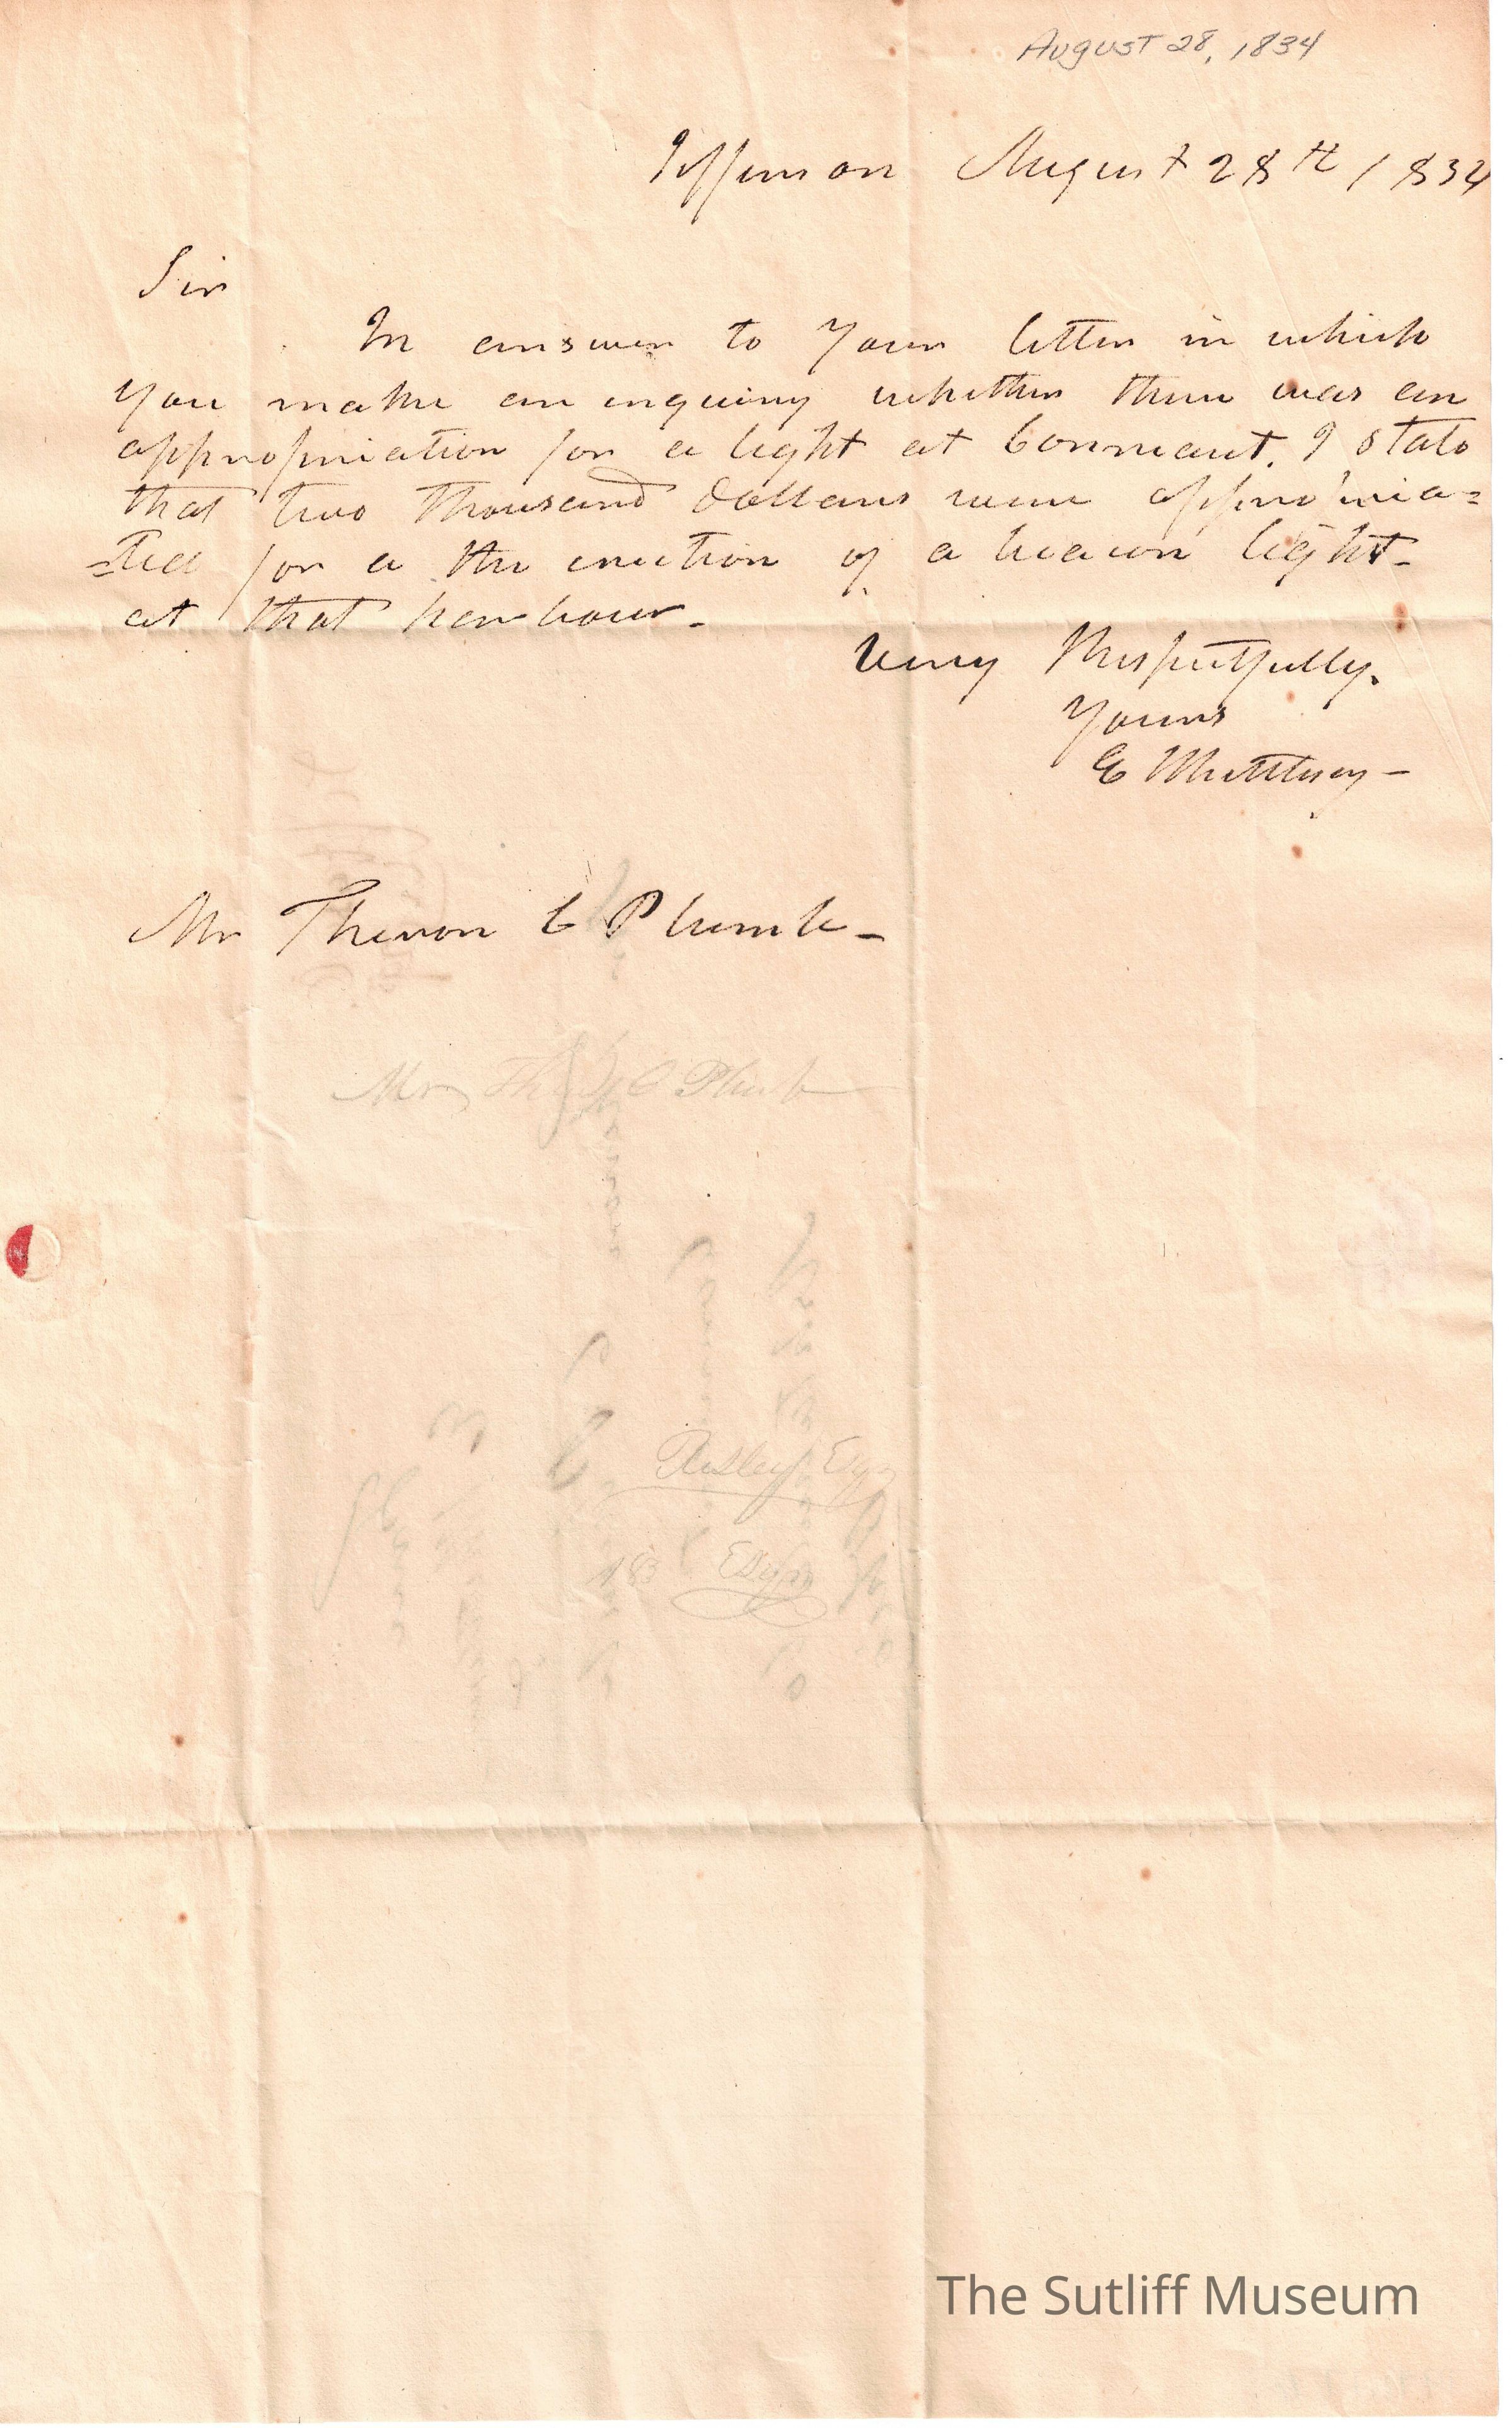 August 28, 1834
Jefferson August 28th 1834
Sir
In answer to your letter in which
you make an enquiry whether there was an
appropriation for a light at Conneaut. I state
that two thousand dollars were appropria=
=ted for a the erection of a beacon light
at that harbour.
Very Respectfully.
Yours
E Whittlesey
Mr Theron C Plumb
Mr C Plumb
Risley Esqr
183 Esqr
The Sutliff Museum